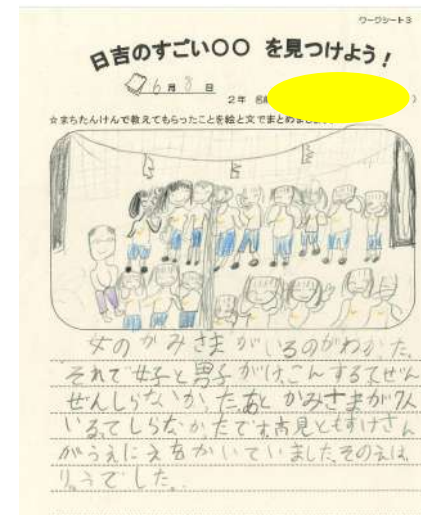 ワークシート3
日吉のすごい〇〇 を見つけよう!
6月8日
2年 名前 )
☆まちたんけんで教えてもらったことを絵と文でまとめましょう。
女のかみさまがいるのがわかった。
それで女子と男子がけっこんするてぜん
ぜんしらないかった。あと かみさまが7人
いるてしらなかたです。高見ともすけさん
がうえにえをかいていました。そのえは、
りゅうでした。